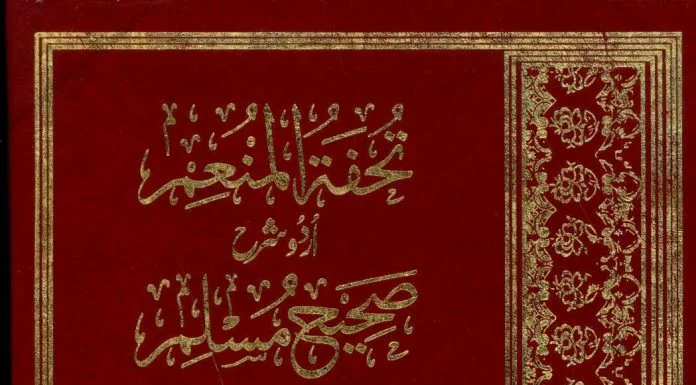 تُحْفَةُ الْمُنْعِمْ
اُردُو شرح
صَحِيْح مُسْلِمْ